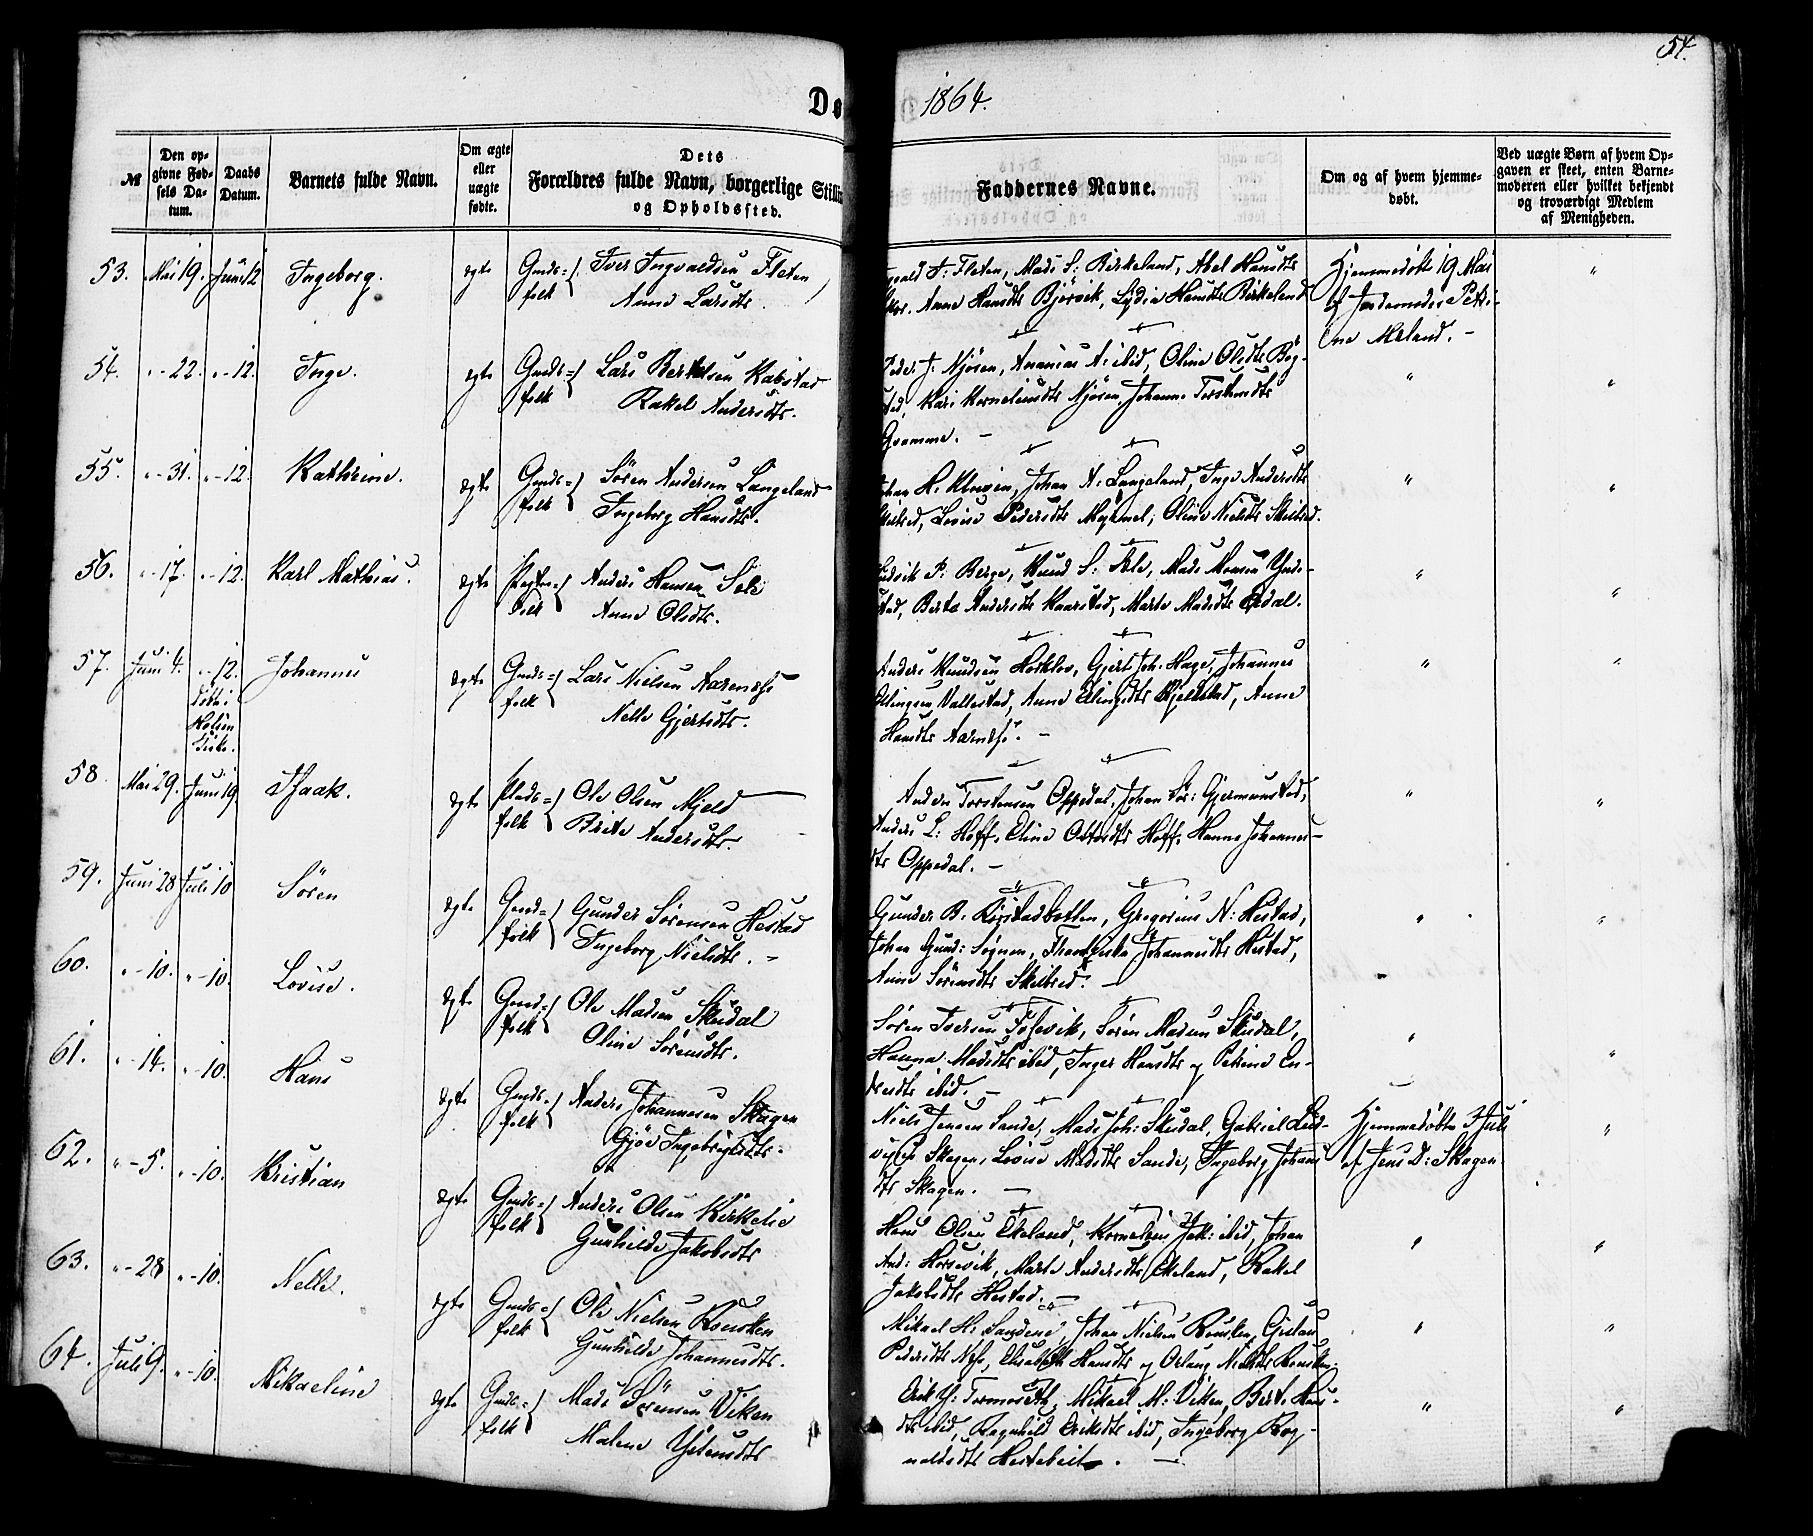 54.
Dø
1864.
№
Den opgivne Fødsels Datum.
Daabs Datum.
Barnets fulde Navn.
Om ægte eller uægte fødte.
Dets
Forældres fulde Navn, borgerlige Stilli
og Opholdssted.
Faddernes Navne.
Om og af hvem hjemmedøbt.
Ved uægte Børn af hvem Opgaven er skeet, enten Barnemoderen eller hvilket bekjendt og troværdigt Medlem af Menigheden.
53. Mai 19. Juni 12 Ingeborg. ægte Gmds= folk { Iver Ingvaldsen Fleten
Anne Larsdtr.
J: Fleten, Mads S: Birkeland, Abel Hansdtr
Anne Hansdtr Bjørvik, Lydia Hansdtr Birkeland
Hjemmedøbt 19 Mai
af Jordemoder Petri-
ne Mæland. -
"
54. "-22. "-12. Inge. ægte Gmds= folk { Lars Bertelsen Rabstad
Rakel Andersdtr.
Peder J. Mjøsen, Ananias A: ibid, Oline Olsdtr Bøg-
stad, Kari Korneliusdtr Mjøsen, Johanne Torstensdtr
Hvamme. -
" "
55. "-31. "-12. Kathrine. ægte Gmds= folk { Søren Andersen Langeland
Ingeborg Hansdtr.
Johan H: Klopen, Johan A: Langeland, Inge Andersdtr
Skilbred, Lovise Pedersdtr Myhmel, Oline Nielsdtr Skilbred.
" "
56. "-17. "-12. Karl Mathias. ægte Pagter= folk { Anders Hansen Sole
Anne Olsdtr.
Ludvik P: Berge, Knud S: Sole, Mads Monsen Ynde-
stad, Berte Andersdtr Kaarstad, Marte Madsdtr Erdal.
" "
57. Juni 4. "-12. døbt i Holsen Kirke. Johannes ægte Gmds= folk { Lars Nielsen Aarnæs
Nelle Gjertsdtr.
Anders Knudsen Horklov, Gjert Joh: Hage, Johannes
Ellingsen Vallestad, Anne Ellingsdtr Kjelstad, Anne
Hansdtr Aarnæs. -
" "
58 Mai 29. Juni 19 Isaak. ægte Plads= folk { Ole Olsen Mjeld
Brite Andersdtr.
Anders Torstensen Oppedal, Johan Sør: Gjermunstad,
Anders L: Hoff, Eline Olsdtr Hoff, Hanne Johannes-
dtr Oppedal. -
" "
59. Juni 28 Juli 10 Søren ægte Gmds= folk { Gunder Sørensen Hestad
Ingeborg Nielsdtr. -
Gunder B. Rørstadbotten, Gregorius N: Hestad,
Johan Gund: Sognen, Johannesdtr Hestad,
Anne Sørensdtr Skilbred. -
" "
60. "-10. "-10. Lovise. ægte Gmds= folk { Ole Madsen Skudal
Oline Sørensdtr.
Søren Iversen Fossevik, Søren Madsen Skudal,
Hanna Madsdtr ibid, Inger Hansdtr og Petrine En-
dresdtr ibid. -
" "
61. "-14. "-10. Hans ægte Gmds= folk { Anders Johannesen Skagen
Gjøe Ingebrigtsdtr.
Niels Jensen Sande, Mads Joh: Skudal, Gabriel Lud-
vigs: Skagen, Lovise Madsdtr Sande, Ingeborg Johans-
dtr Skagen. -
Hjemmedøbt 3 Juli
af Jens D: Skagen.
"
62. "-5. "-10. Kristian ægte Gmds= folk { Anders Olsen Kirkelie
Gunhilde Jakobsdtr
Hans Olsen Ekeland, Kornelius Jak: ibid, Johan
And: Horsevik, Marte Andersdtr Ekeland, Rakel
Jakobsdtr Hestad. -
" "
63. "-28 "-10. Nelle. ægte Gmds= folk { Ole Nielsen Rousken
Gunhilde Johannesdtr.
Mikael H: Sandene, Johan Nielsen Rousken, Gjelau
Pedersdtr Næs, Elisabeth Hansdtr og Oslaug Nielsdtr Rousken.
" "
64. Juli 9. "-10. Mikaeline ægte Gmds= folk { Mads Sørensen Viken
Malene Ystensdtr
Erik Y: Tormoseth, Mikael M: Viken, Berte Hans-
dtr ibid, Ragnhild Eriksdtr ibid, Ingeborg Rog-
naldsdtr Hestebeit. -
" "